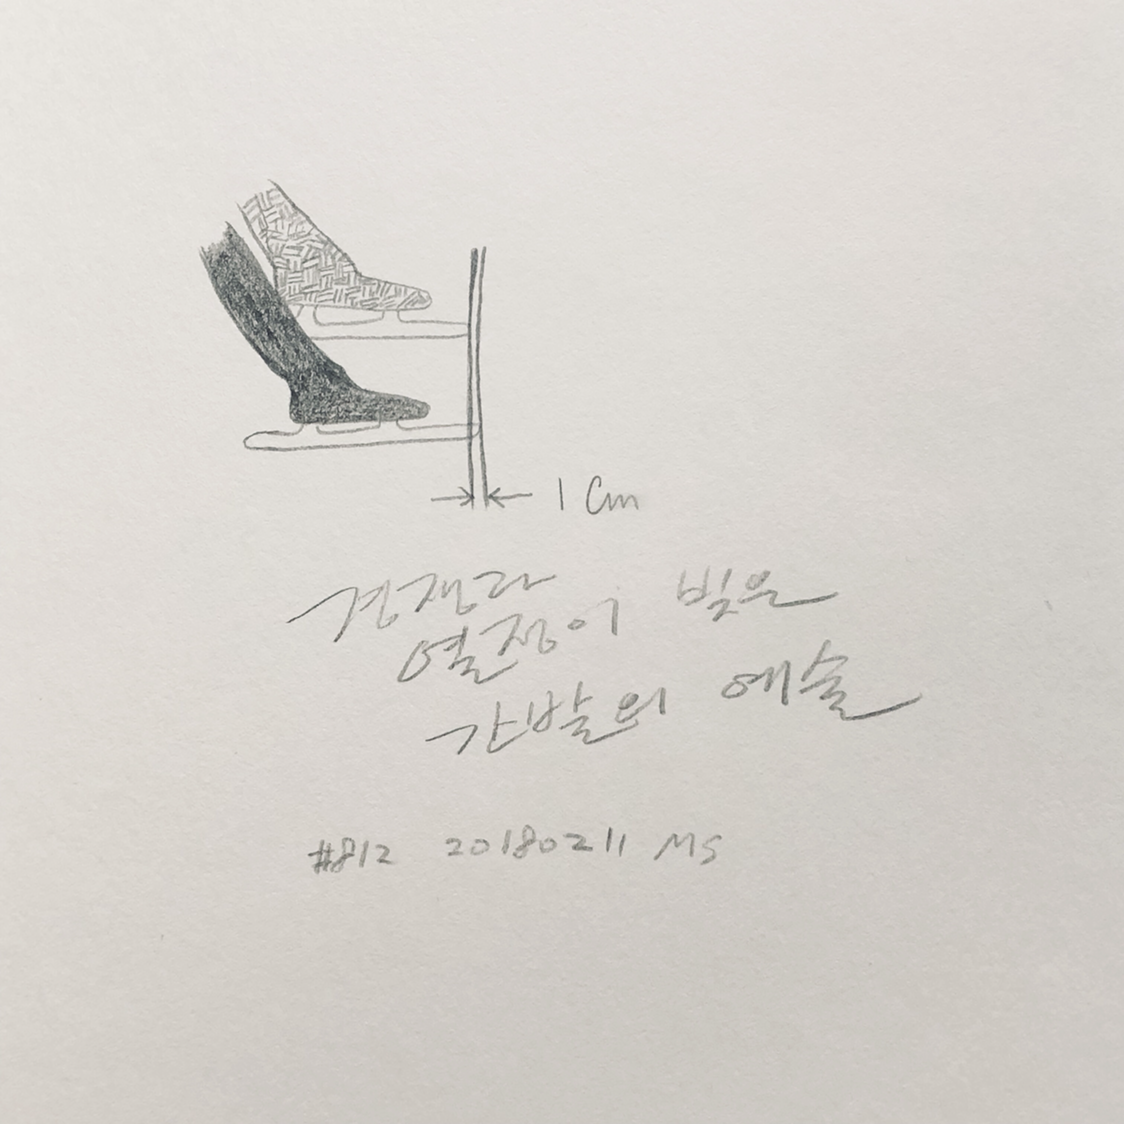 1 Cm
경쟁과
열정이 빚은
간발의 예술
#812 20180211 MS